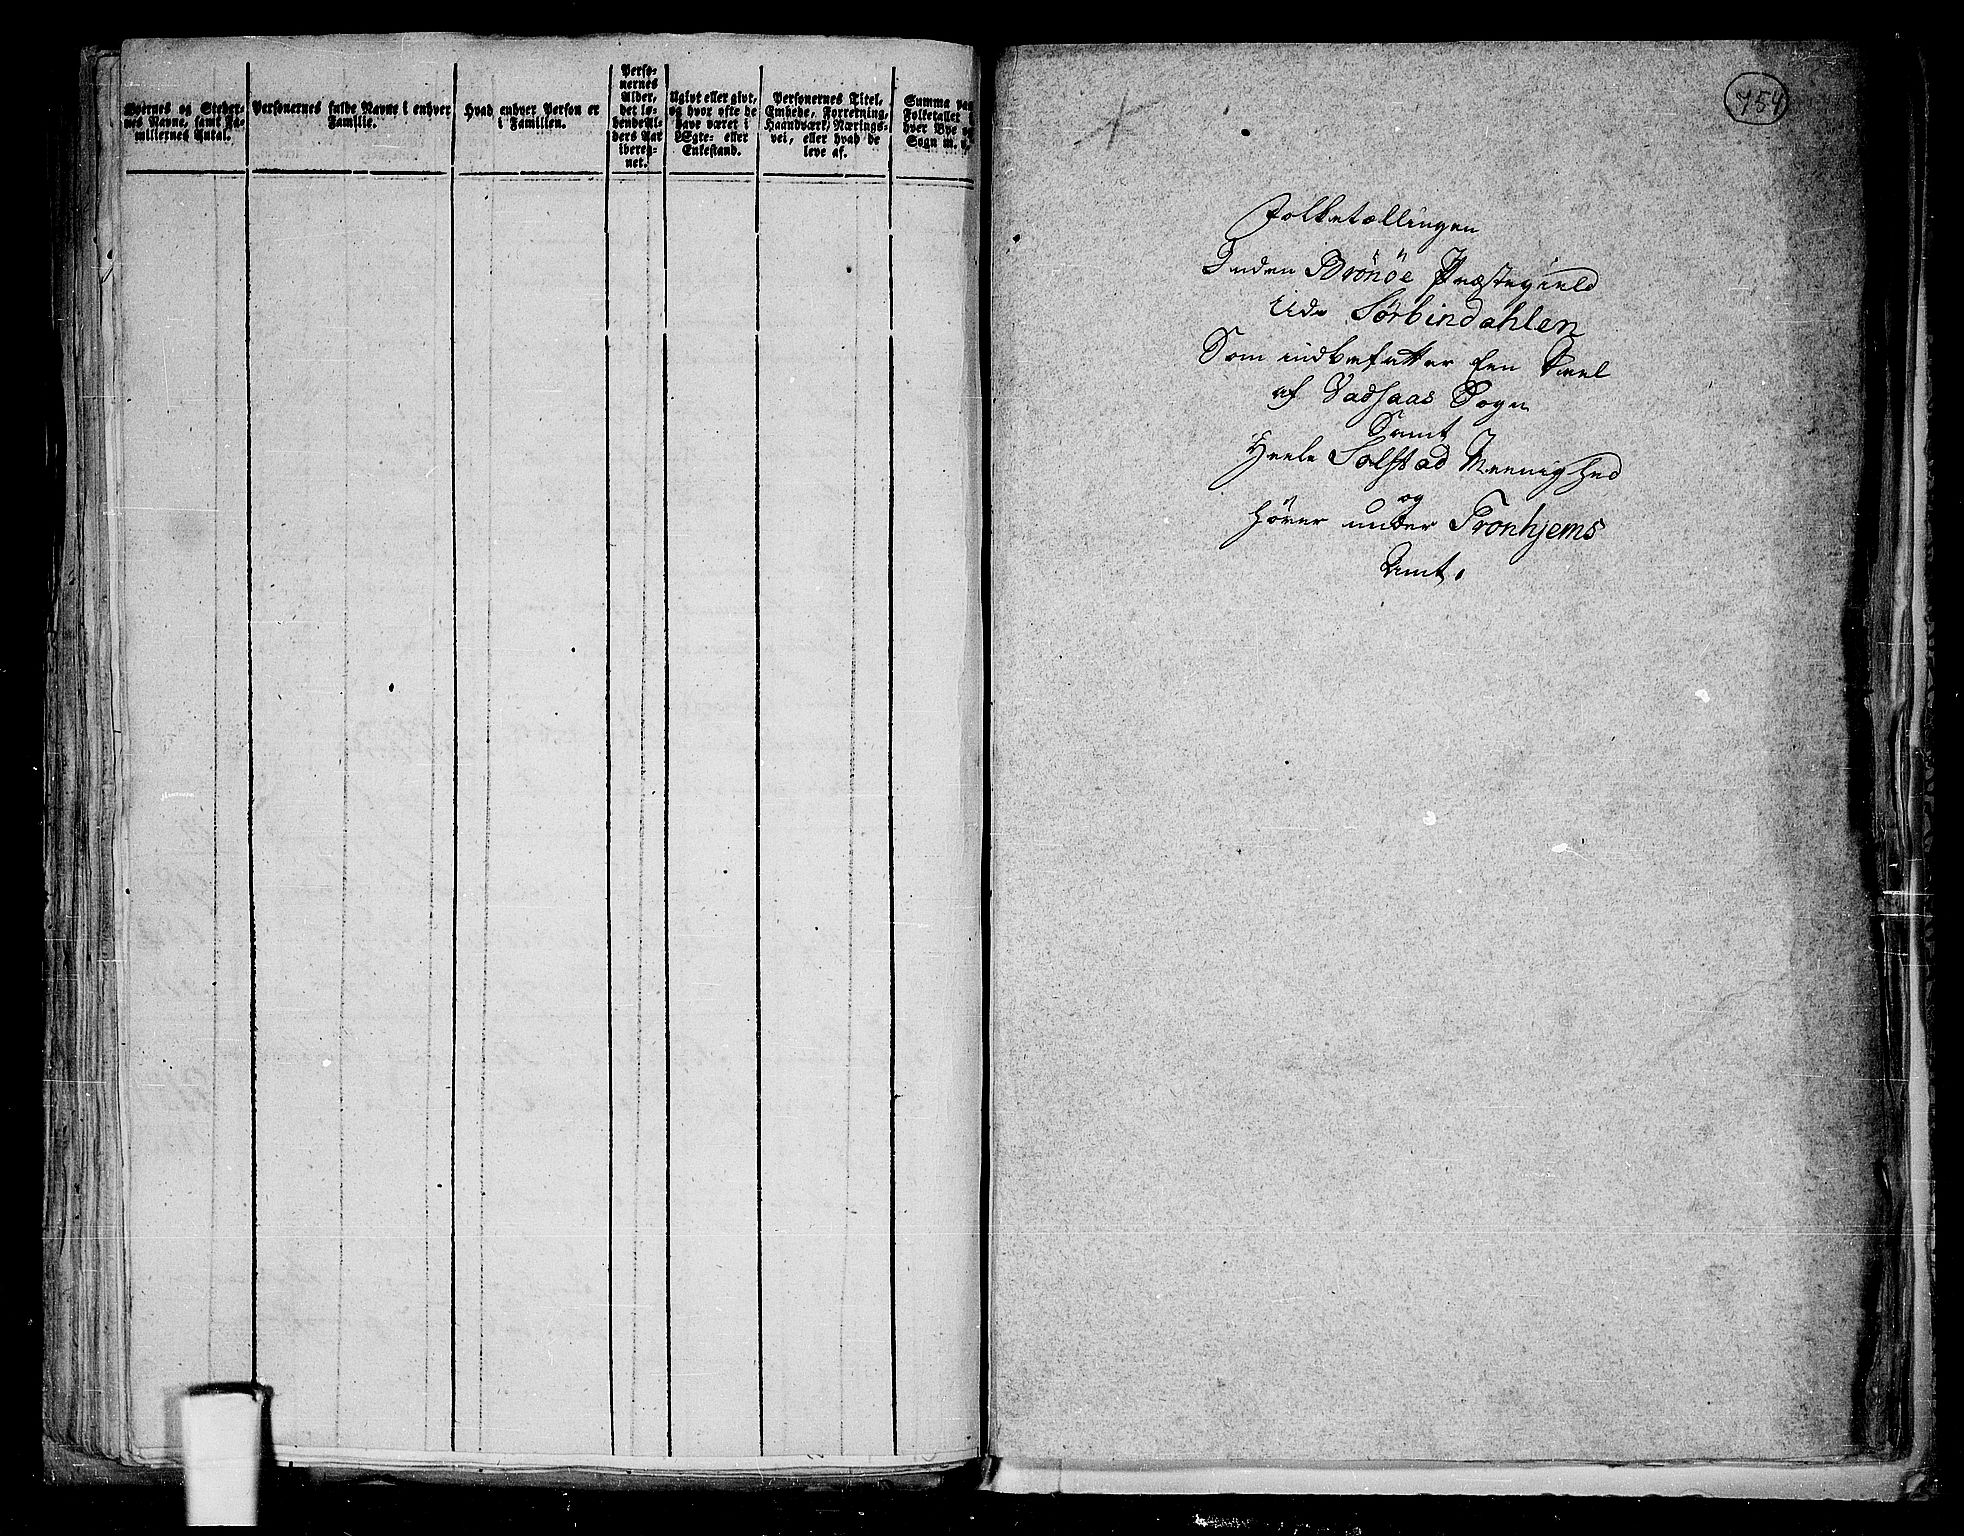 Byernes og Steder-
nes Navne, samt Fa-
miliernes Antal.
Personernes fulde Navne i enhver
Familie.
Hvad enhver Person er
i Familien.
Perso-
nernes
Alder,
det lø-
bende Al-
ders Aar
ibereg-
net.
Ugivt eller givt,
og hvor ofte de
have været i
Egte- eller
Enkestand.
Personernes Titel,
Embede, Forretning,
Haandværk, Nærings-
vei, eller hvad de
leve af.
Summa paa
Folketallet
hver Bye
Sogn m. v.
754
Folketællingen
Inden Brönöe Præstegield
Udi Sørbindahlen
Som indbefatter Een Deel
af Vadsaas Sogn
Samt
Heele Solstad Meenighed
og
hører under Tronhjems
Amt.